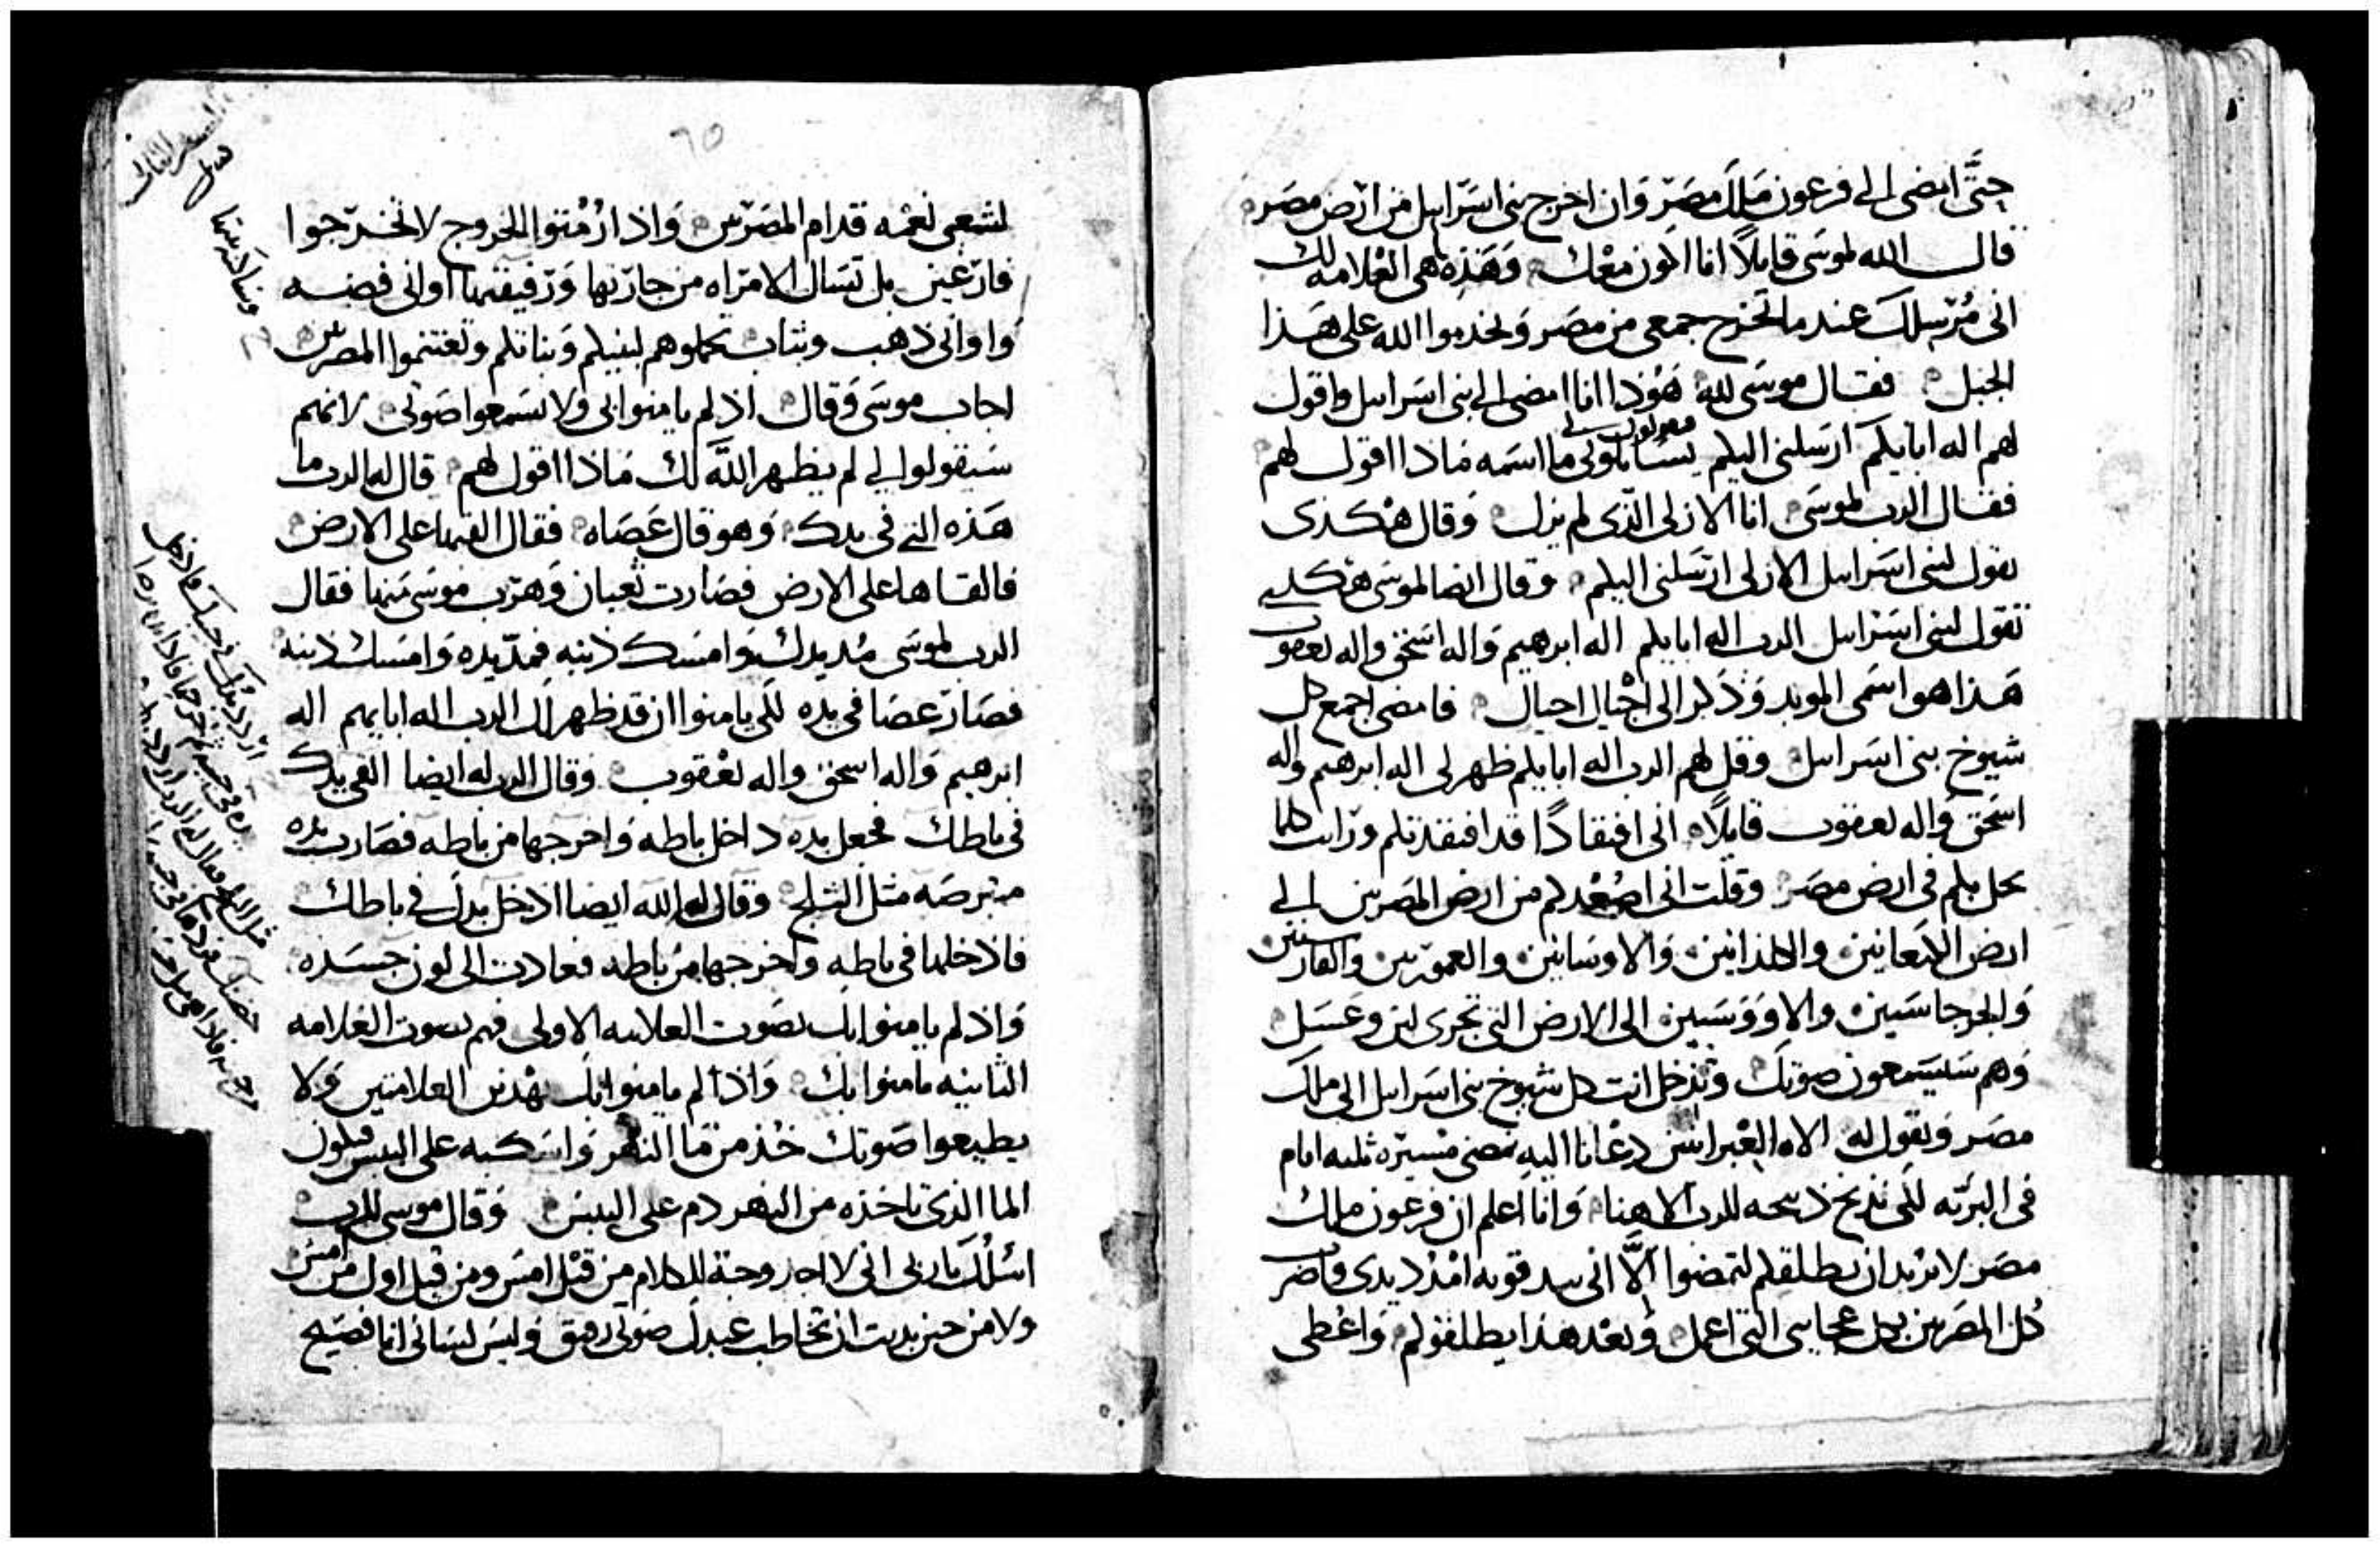 حتَّى امضى الى فرعون ملك مصر وان اخرج بنى اسرايل من ارض مصر
قال الله لموسى قايلًا انا اكون معك وهذه هى العلامه لك
انى مُرسلك عندما تخرج جمعى من مصر وتخدموا الله على هذا
الجبل فقال موسى لله هوذا انا امضى الى بنى اسرايل واقول
لهم اله ابايكم ارسلنى اليكم يسايلونى ما اسمه ماذا اقول لهم
فقال الرب لموسى انا الازلى الذى لم يزل وقال هكذى
تقول لبنى اسرايل الازلى ارسلنى اليكم وقال ايضا لموسى هكذى
تقول لبنى اسرايل الرب اله ابايكم اله ابرهيم واله اسحق واله يعقوب
هذا هو اسمى الموبد وذكر الى اجيال اجيال فامضى اجمع كل
شيوخ بنى اسرايل وقل لهم الرب اله ابايكم ظهر لى اله ابرهيم واله
اسحق واله يعقوب قايلًا انى افتقادًا قد افتقدتكم ورايت كلما
يحل بكم فى ارض مصر وقلت انى اصعدكم من ارض المصريين الى
ارض الكنعانيين والكلدانيين والاوسانيين والعموريين والفارسيين
والجرجاسيين والاووسيين الى الارض التى تجرى لبن وعسل
وهم سيسمعون صوتك وتدخل انت كل شيوخ بنى اسرايل الى ملك
مصر وتقول له الاه العبرانيين دعانا اليه نمضى مسيرة ثلثه ايام
فى البريه لكى نذبح ذبيحه للرب الاهنا وانا اعلم ان فرعون ملك
مصر لا يريد ان يطلقكم لتمضوا الَّا انى بيد قويه امدد يدى واضرب
كل المصريين بكل عجايبى التى اعمل وبعد هذا يطلقوكم واعطى
٦٥
لشعبى نعمه قدام المصريين واذا ازمتوا الخروج لا تخرجوا
فارغين بل تسال الامراه من جارتها ورفيقتها اوانى فضه
واوانى ذهب وثياب تحملوهم لبنيكم وبناتكم وتغتنموا المصريين
اجاب موسى وقال اذ لم يامنوا بى ولا يسمعوا صوتى لانهم
سيقولوا لى لم يظهر الله لك ماذا اقول لهم قال له الرب ما
هذه التى فى يدك وهو قال عصاه فقال القيها على الارض
فالقاها على الارض فصارت ثعبان وهرب موسى منها فقال
الرب لموسى مُد يدك وامسك ذنبه فمدّ يده وامسك ذنبه
فصار عصا فى يده لكى يامنوا ان قد ظهر لك الرب اله ابايهم اله
ابرهيم واله اسحق واله يعقوب وقال الرب له ايضا القى يدك
فى باطك فجعل يده داخل باطه واخرجها من باطه فصارت يده
مبرصه مثل الثلج وقال له الله ايضا ادخل يدك فى باطك
فادخلها فى باطه واخرجها من باطه فعادت الى لون جسده
واذ لم يامنوا بك بصوت العلامه الاولى فهم بصوت العلامه
الثانيه يامنوا بك واذا لم يامنوا بك بهذين العلامتين ولا
يطيعوا صوتك خذ من ما النهر واسكبه على اليبس فيكون
الما الذى تاخذه من النهر دم على اليبس وقال موسى للرب
اسلك يا ربى انى لا اجد وجهة للكلام من قبل امس ومن قبل اول من امس
ولا من حين بديت ان تخاطب عبدك صوتى رقيق وليس لسانى انا فصيح